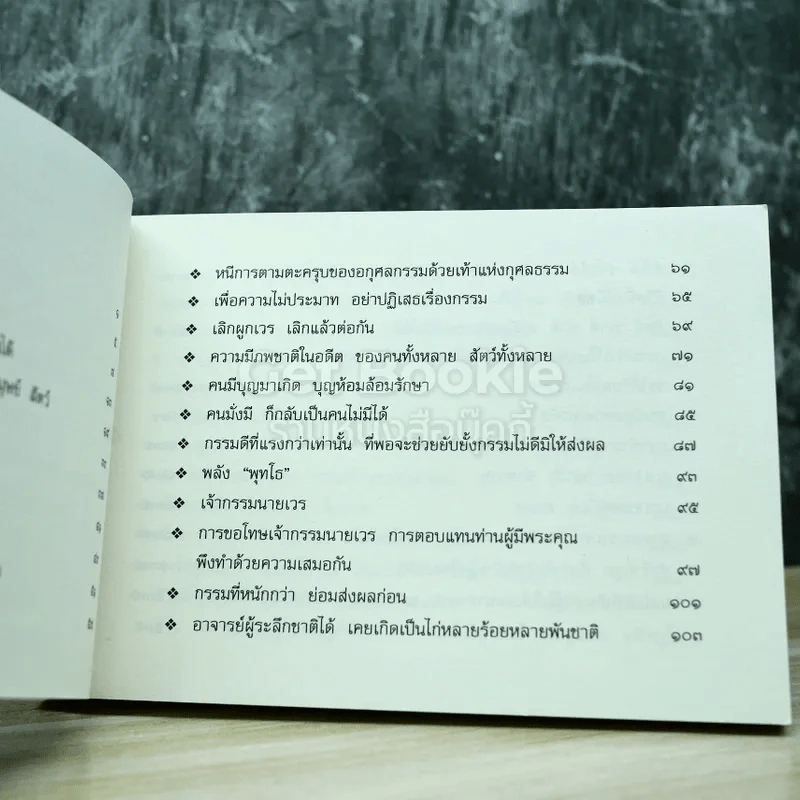 ❖ หนีการตามตะครุบของอกุศลกรรมด้วยเท้าแห่งกุศลธรรม ๖๑
❖ เพื่อความไม่ประมาท อย่าปฏิเสธเรื่องกรรม ๖๕
❖ เลิกผูกเวร เลิกแล้วต่อกัน ๖๙
❖ ความมีภพชาติในอดีต ของคนทั้งหลาย สัตว์ทั้งหลาย ๗๑
❖ คนมีบุญมาเกิด บุญห้อมล้อมรักษา ๘๑
❖ คนมั่งมี ก็กลับเป็นคนไม่มีได้ ๘๕
❖ กรรมดีที่แรงกว่าเท่านั้น ที่พอจะช่วยยับยั้งกรรมไม่ดีมิให้ส่งผล ๘๗
❖ พลัง “พุทโธ” ๙๓
❖ เจ้ากรรมนายเวร ๙๕
❖ การขอโทษเจ้ากรรมนายเวร การตอบแทนท่านผู้มีพระคุณ
พึงทำด้วยความเสมอกัน ๙๗
❖ กรรมที่หนักกว่า ย่อมส่งผลก่อน ๑๐๑
❖ อาจารย์ผู้ระลึกชาติได้ เคยเกิดเป็นไก่หลายร้อยหลายพันชาติ ๑๐๓
Get Bookie
ร้านหนังสือบุ๊คกี้